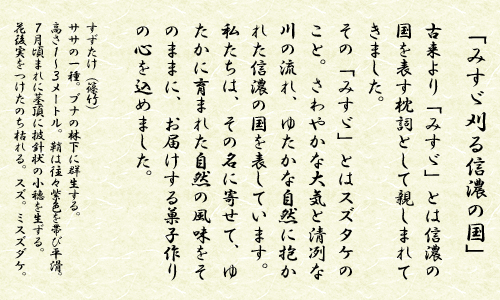 「みすゞ刈る信濃の国」
古来より「みすゞ」とは信濃の
国を表す枕詞として親しまれて
きました。
その「みすゞ」とはスズタケの
こと。さわやかな大気と清冽な
川の流れ、ゆたかな自然に抱か
れた信濃の国を表しています。
私たちは、その名に寄せて、ゆ
たかに育まれた自然の風味をそ
のままに、お届けする菓子作り
の心を込めました。
すずたけ（篠竹）
ササの一種。ブナの林下に群生する。
高さ1～3メートル。鞘は往々紫色を帯び平滑。
7月頃まれに茎頂に披針状の小穂を生ずる。
花後実をつけたのち枯れる。スズ。ミスズダケ。